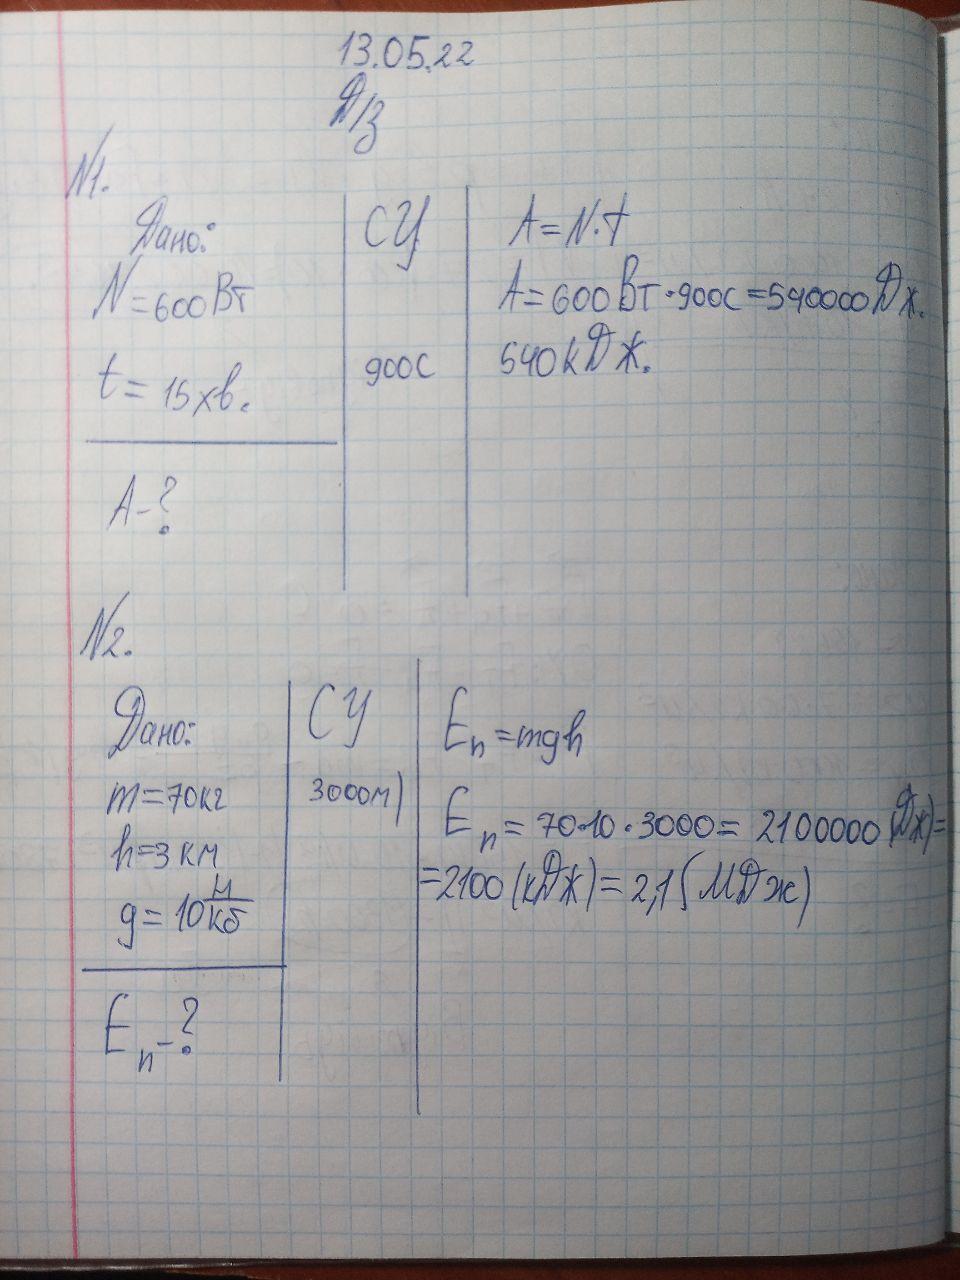 13.05.22
Д/З
N1.
Дано:
N=600Вт
t=15хв.
А-?
СУ
900с
A=N·t
A=600Вт·900с=540000Дж.
540кДж.
N2.
Дано:
m=70кг
h=3км
g=10н/кб
Eп-?
СУ
3000м)
Eп=mgh
Eп=70·10·3000=2100000(Дж)=
=2100(кДж)=2,1(МДж)